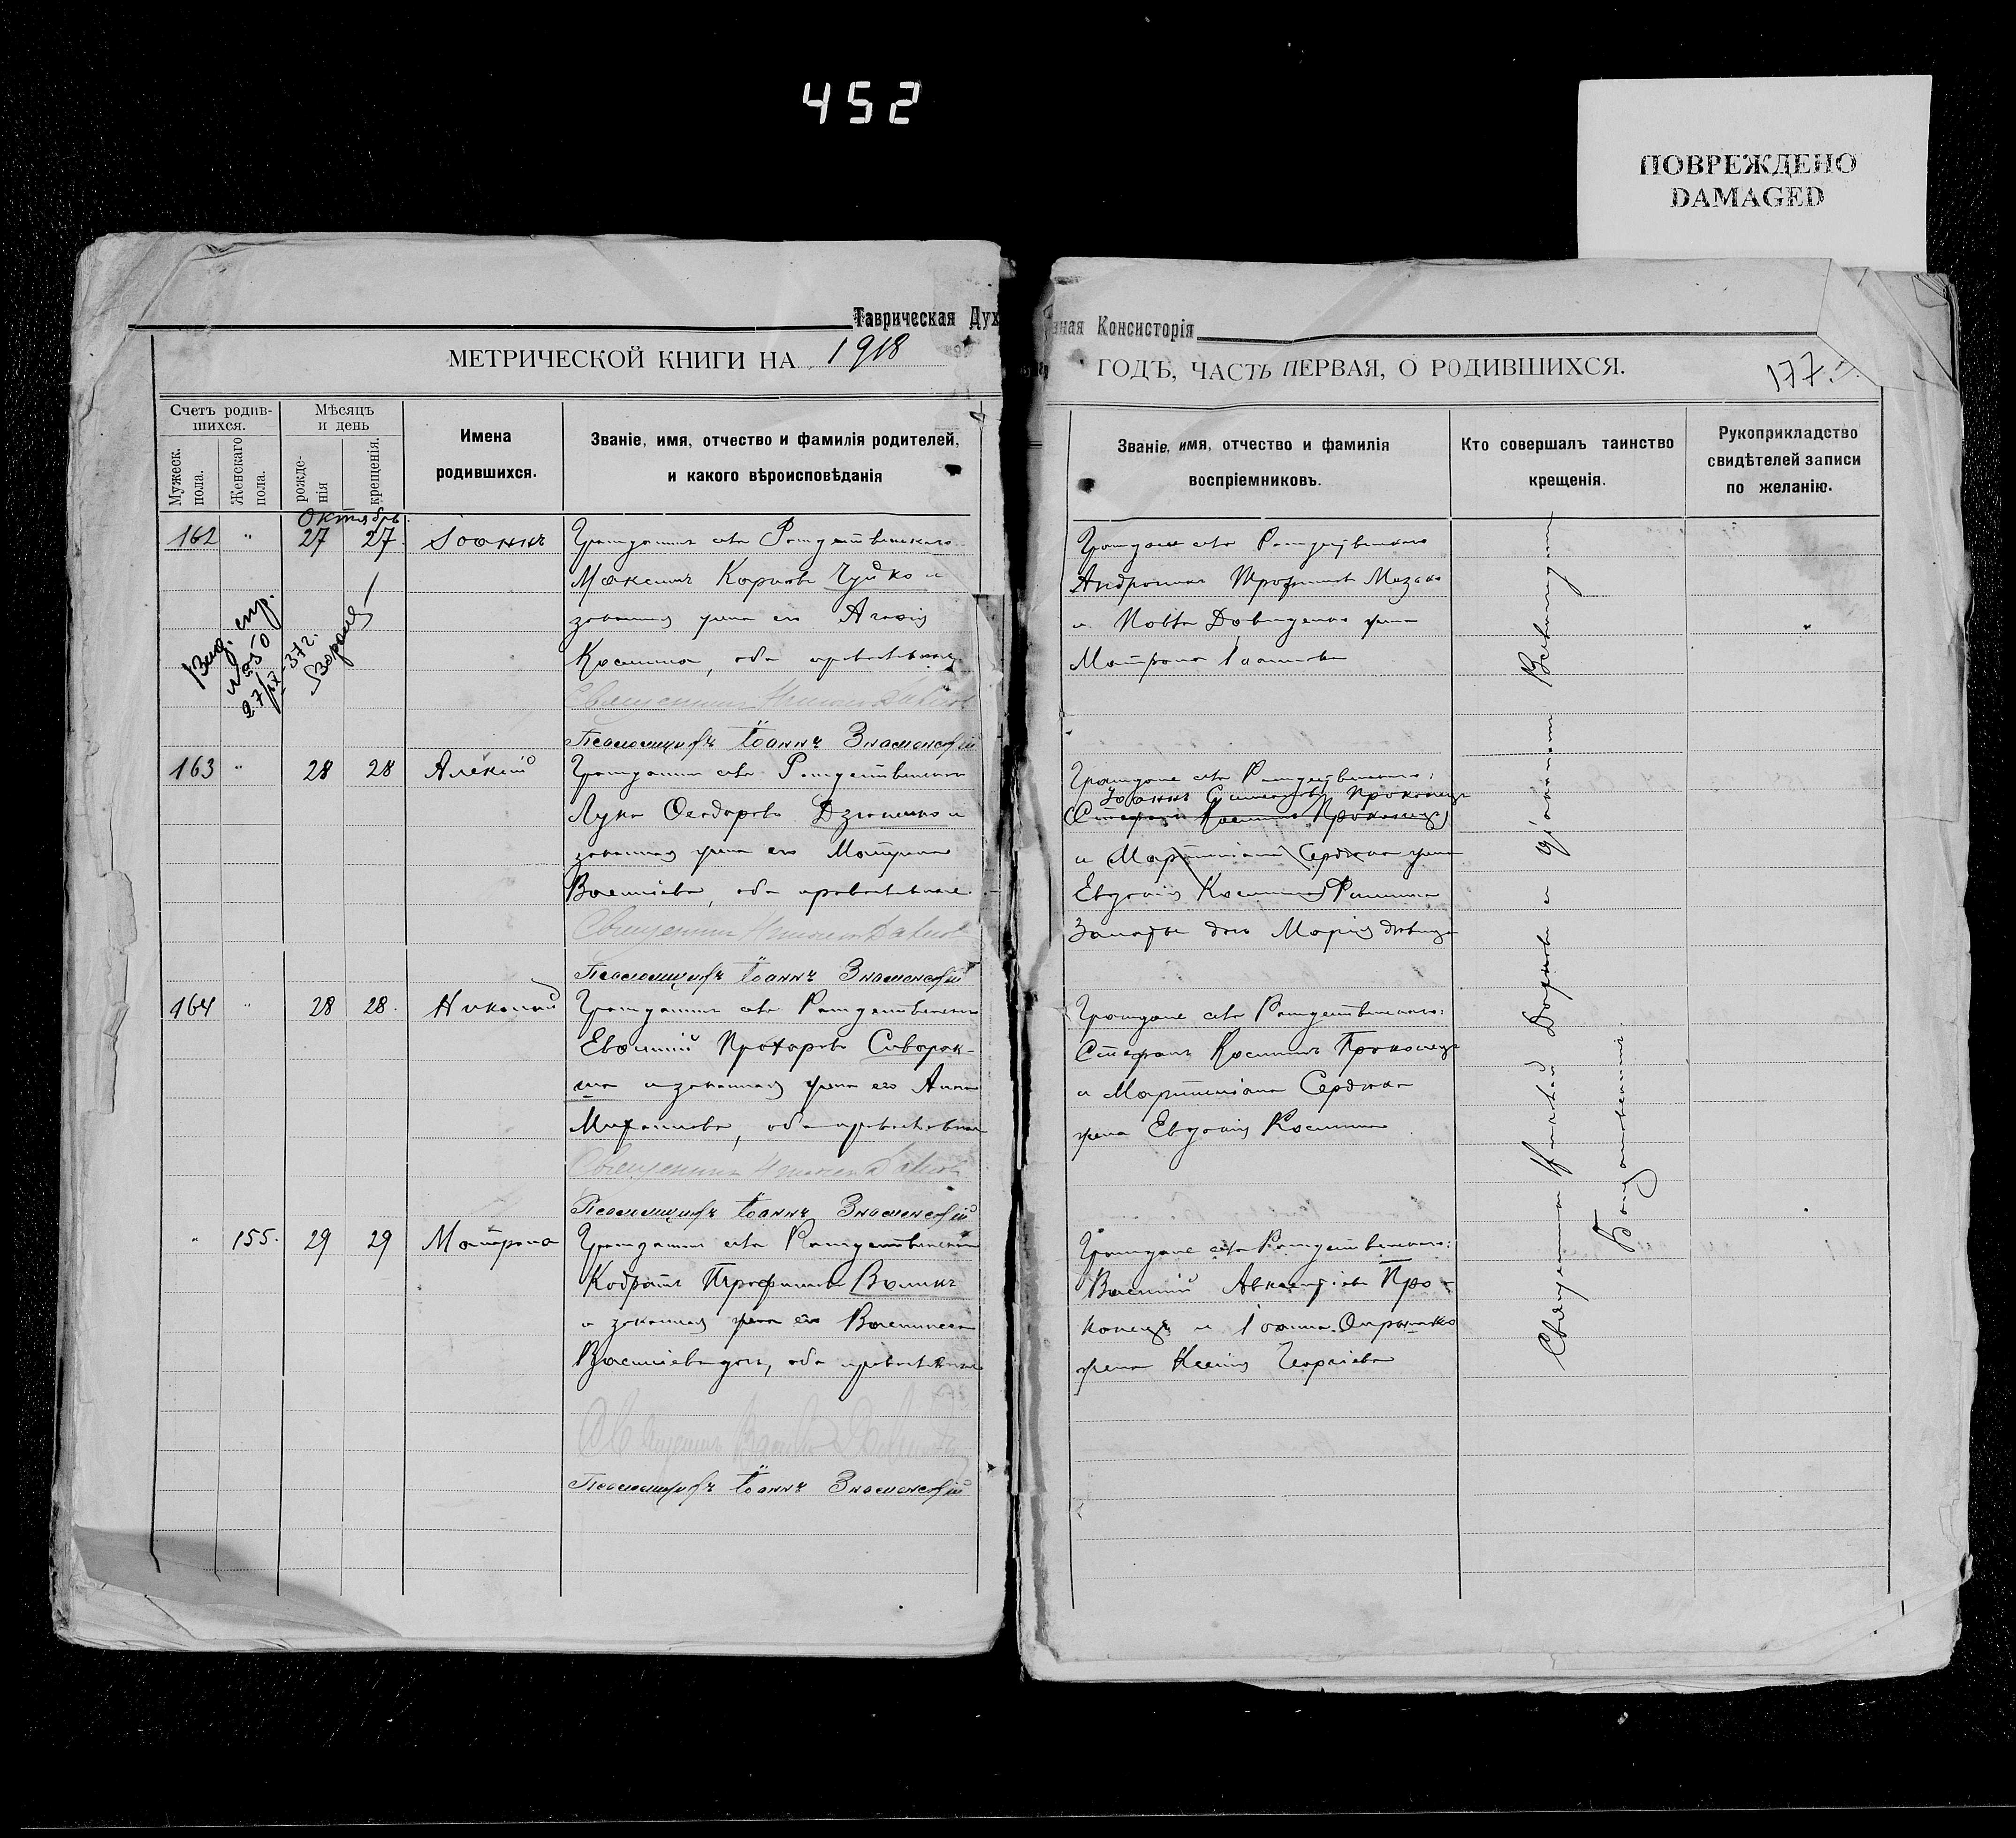 452
ПОВРЕЖДЕНО
DAMAGED
Таврическая Дух
вная Консисторія
МЕТРИЧЕСКОЙ КНИГИ НА 1918
ГОДЪ, ЧАСТЬ ПЕРВАЯ, О РОДИВШИХСЯ.
177
Счетъ родив-
шихся.
Мужеск.
пола.
Женскаго
пола.
Мѣсяцъ
и день
рожде-
нія
крещенія.
Имена
родившихся.
Званіе, имя, отчество и фамилія родителей,
и какого вѣроисповѣданія
Званіе, имя, отчество и фамилія
воспріемниковъ.
Кто совершалъ таинство
крещенія.
Рукоприкладство
свидѣтелей записи
по желанію.
Октябрь
162 " 27 27. Іоаннъ Гражданинъ села Рождественскаго
Максимъ Карповъ Чуйко и
законная жена его Агафія
Косьмина, оба православные
Псаломщикъ Іоаннъ Знаменскій
Выд. спр.
№ 50
27/IX-37 г.
Граждане села Рождественскаго
Трофимовъ
и жена
Матрона Іоаннова
163 " 28 28 Алексій Гражданинъ села Рождественскаго
Лука Ѳеодоровъ Дзюненко и
законная жена его Матрона
Васильева, оба православные
Священникъ
Псаломщикъ Іоаннъ Знаменскій
Граждане села Рождественскаго:
Іоаннъ Симеоновъ Проконецъ
Стефанъ Косьминъ Проконецъ
и Мартиніана Сердюка жена
Евдокія Косьмина
дочь Марія дѣвица
164 " 28 28. Николай Гражданинъ села Рождественскаго
Евѳимій Прохоровъ Саворок-
ша и законная жена его Анна
Михайлова, оба православные
Священникъ
Псаломщикъ Іоаннъ Знаменскій
Граждане села Рождественскаго:
Стефанъ Косьминъ Проконецъ
и Мартиніана Сердюка
жена Евдокія Косьмина
" 155. 29 29 Матрона Гражданинъ села Рождественскаго
Кодратъ Трофимовъ Воликъ
и законная жена его Василисса
Васильева, оба православные
Священникъ
Псаломщикъ Іоаннъ Знаменскій
Граждане села Рождественскаго:
Василій Про-
конецъ и Іоанна
жена Ксенія Георгіева
Священникъ и діаконъ